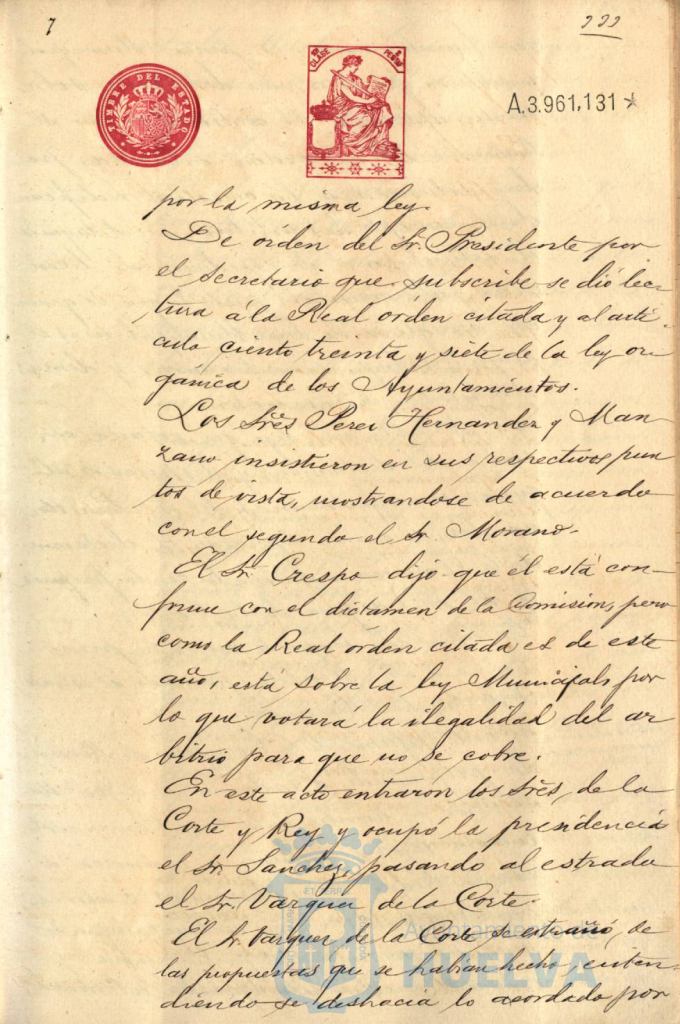 7
222
TIMBRE DEL ESTADO
CLASE
A.3.961,131*
por la misma ley.
De órden del Sr. Presidente por
el secretario que subscribe se dió lec-
tura á la Real órden citada y al artí-
culo ciento treinta y siete de la ley or-
gánica de los Ayuntamientos.
Los Sres Perez Hernandez y Man-
zano insistieron en sus respectivos pun
tos de vista, mostrandose de acuerdo
con el segundo el Sr. Morano.
El Sr. Crespo dijo que él está con-
forme con el dictamen de la Comision, pero
como la Real órden citada es de este
año, está sobre la ley Municipal, por
lo que votará la ilegalidad del ar
bitrio para que no se cobre.
En este acto entraron los Sres, de la
Corte y Rey y ocupó la presidencia
el Sr. Sanchez, pasando al estrado
el Sr. Vazquez de la Corte.
El Sr. Vazquez de la Corte se estrañó, de
las propuestas que se habian hecho, enten-
diendo se deshacia lo acordado por
HUELVA